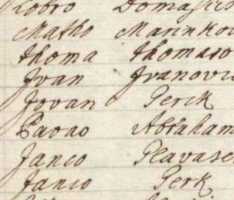 Lobro Domasus
Matho Marinkov
thoma thomaso
Jvan Jvanovis
Jovan Perck
Pavao Abraham
Janco Plavase
Janco Perk